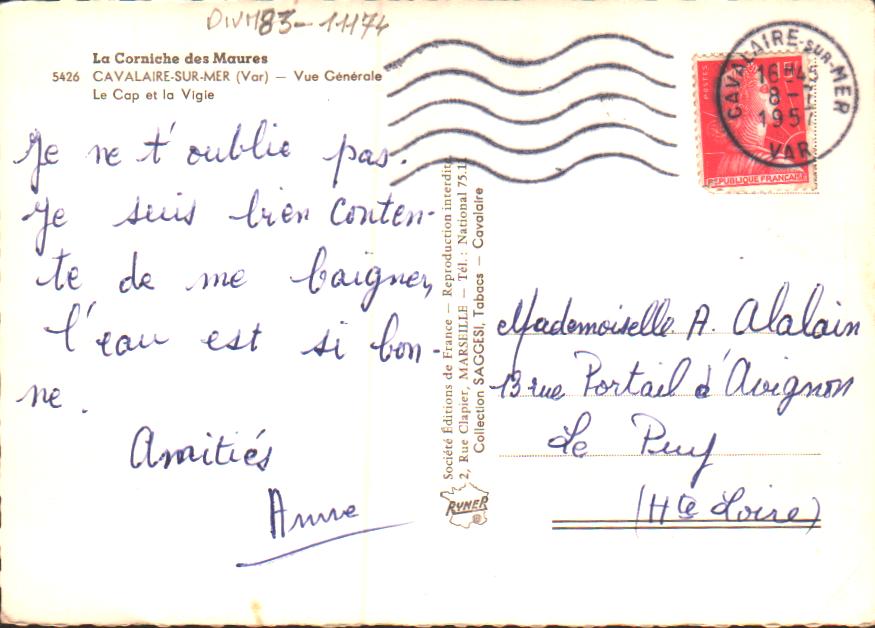 DIVM83-11174
La Corniche des Maures
5426 CAVALAIRE-SUR-MER (Var) — Vue Générale
Le Cap et la Vigie
Je ne t'oublie pas.
Je suis bien conten-
te de me baigner,
l'eau est si bon-
ne.
Amitiés
Anne
Société Éditions de France — Reproduction interdite
2, Rue Clapier, MARSEILLE — Tél.: National 75.11
Collection SAGGESI, Tabacs — Cavalaire
RYNER
POSTES
RÉPUBLIQUE FRANÇAISE
CAVALAIRE-SUR-MER
16H45
8 -
1957
VAR
Mademoiselle A. Alalain
13 rue Portail d'Avignon
Le Puy
(Hte Loire)